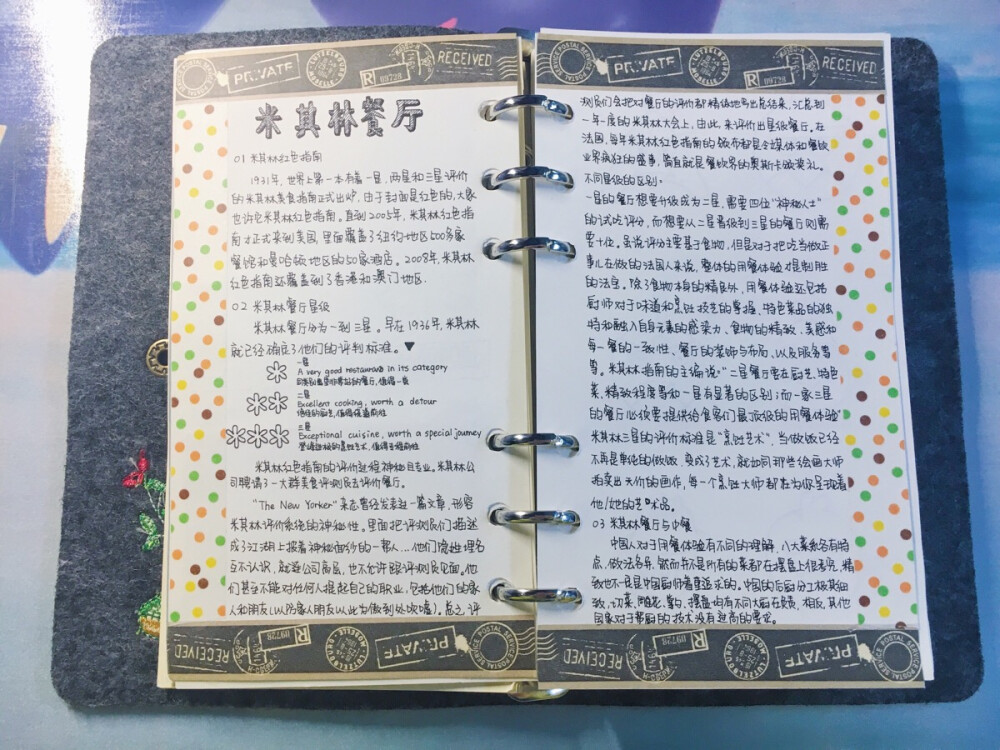 PRIVATE
RECEIVED
R
09728
米其林餐厅
01 米其林红色指南
1931年,世界上第一本有着一星,两星和三星评价
的米其林美食指南正式出炉,由于封面是红色的,大家
也许它米其林红色指南。直到2005年,米其林红色指
南才正式来到美国,里面覆盖了纽约地区500多家
餐馆和曼哈顿地区的50家酒店。2008年,米其林
红色指南还覆盖到了香港和澳门地区.
02 米其林餐厅星级
米其林餐厅分为一到三星。早在1936年,米其林
就已经确定了他们的评判标准。▼
一星
A very good restaurant in its category
同类别中非常好的餐厅,值得一食
二星
Excellent cooking, worth a detour
值得绕道前往
三星
Exceptional cuisine, worth a special journey
值得专程前往
米其林红色指南的评价过程神秘且专业。米其林公
司聘请了一大群美食评测员去评价餐厅。
"The New Yorker"杂志曾经发表过一篇文章,形容
米其林评价系统的神秘性。里面把评测员们描述
成了江湖上披着神秘面纱的一帮人...他们隐姓埋名
互不认识,就连公司高层,也不允许跟评测员见面,他
们甚至不能对任何人提起自己的职业,包括他们的家
人和朋友(以防家人朋友以此为傲到处吹嘘)。总之,评
RECEIVED
09728
R
PRIVATE
POSTAL SERVICE
PRIVATE
R
09728
RECEIVED
测员们会把对餐厅的评价都精炼地写出总结来,汇总到
一年一度的米其林大会上,由此,来评价出星级餐厅。在
法国,每年米其林红色指南的颁布都是令媒体和餐饮
业界疯狂的盛事,简直就是餐饮界的奥斯卡颁奖礼。
不同星级的区别:
一星的餐厅想要升级成为二星,需要四位"神秘人士"
的试吃评分,而想要从二星晋级到三星的餐厅则需
要十位。虽说评分主要基于食物,但是对于把吃当做正
事儿在做的法国人来说,整体的用餐体验才是制胜
的法宝。除了食物本身的精良外,用餐体验还包括
厨师对于味道和烹饪技艺的掌握、特色菜品的独
特和融入自身元素的感染力、食物的精致、美感和
每一餐的一致性、餐厅的装饰与布局、以及服务等
等。米其林指南的主编说:"二星餐厅要在厨艺、特色
菜、精致程度等和一星有显著的区别;而一家三星
的餐厅必须要提供给食客们最顶级的用餐体验"
米其林三星的评价标准是"烹饪艺术",当做饭已经
不再是单纯的做饭,变成了艺术,就如同那些绘画大师
拍卖出天价的画作,每一个烹饪大师都在为你呈现着
他/她的艺术品。
03 米其林餐厅与中餐
中国人对于用餐体验有不同的理解,八大菜系各有特
点,做法各异,然而并不是所有的菜都在摆盘上很考究,精
致也不一定是中国厨师着重追求的。中国的后厨分工极其细
致,切菜、雕花、掌勺、摆盘均有不同大厨在负责,相反,其他
国家对于帮厨的技术没有过高的要求。
RECEIVED
09728
R
PRIVATE
POSTAL SERVICE